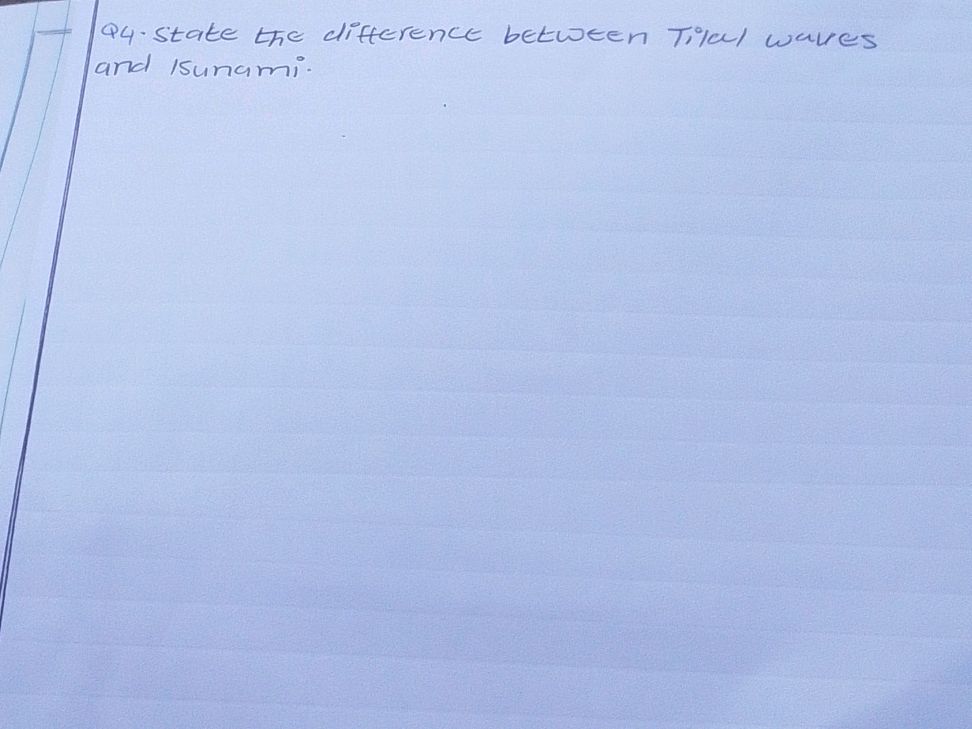 Q4. State the difference between Tidal waves
and Tsunami.